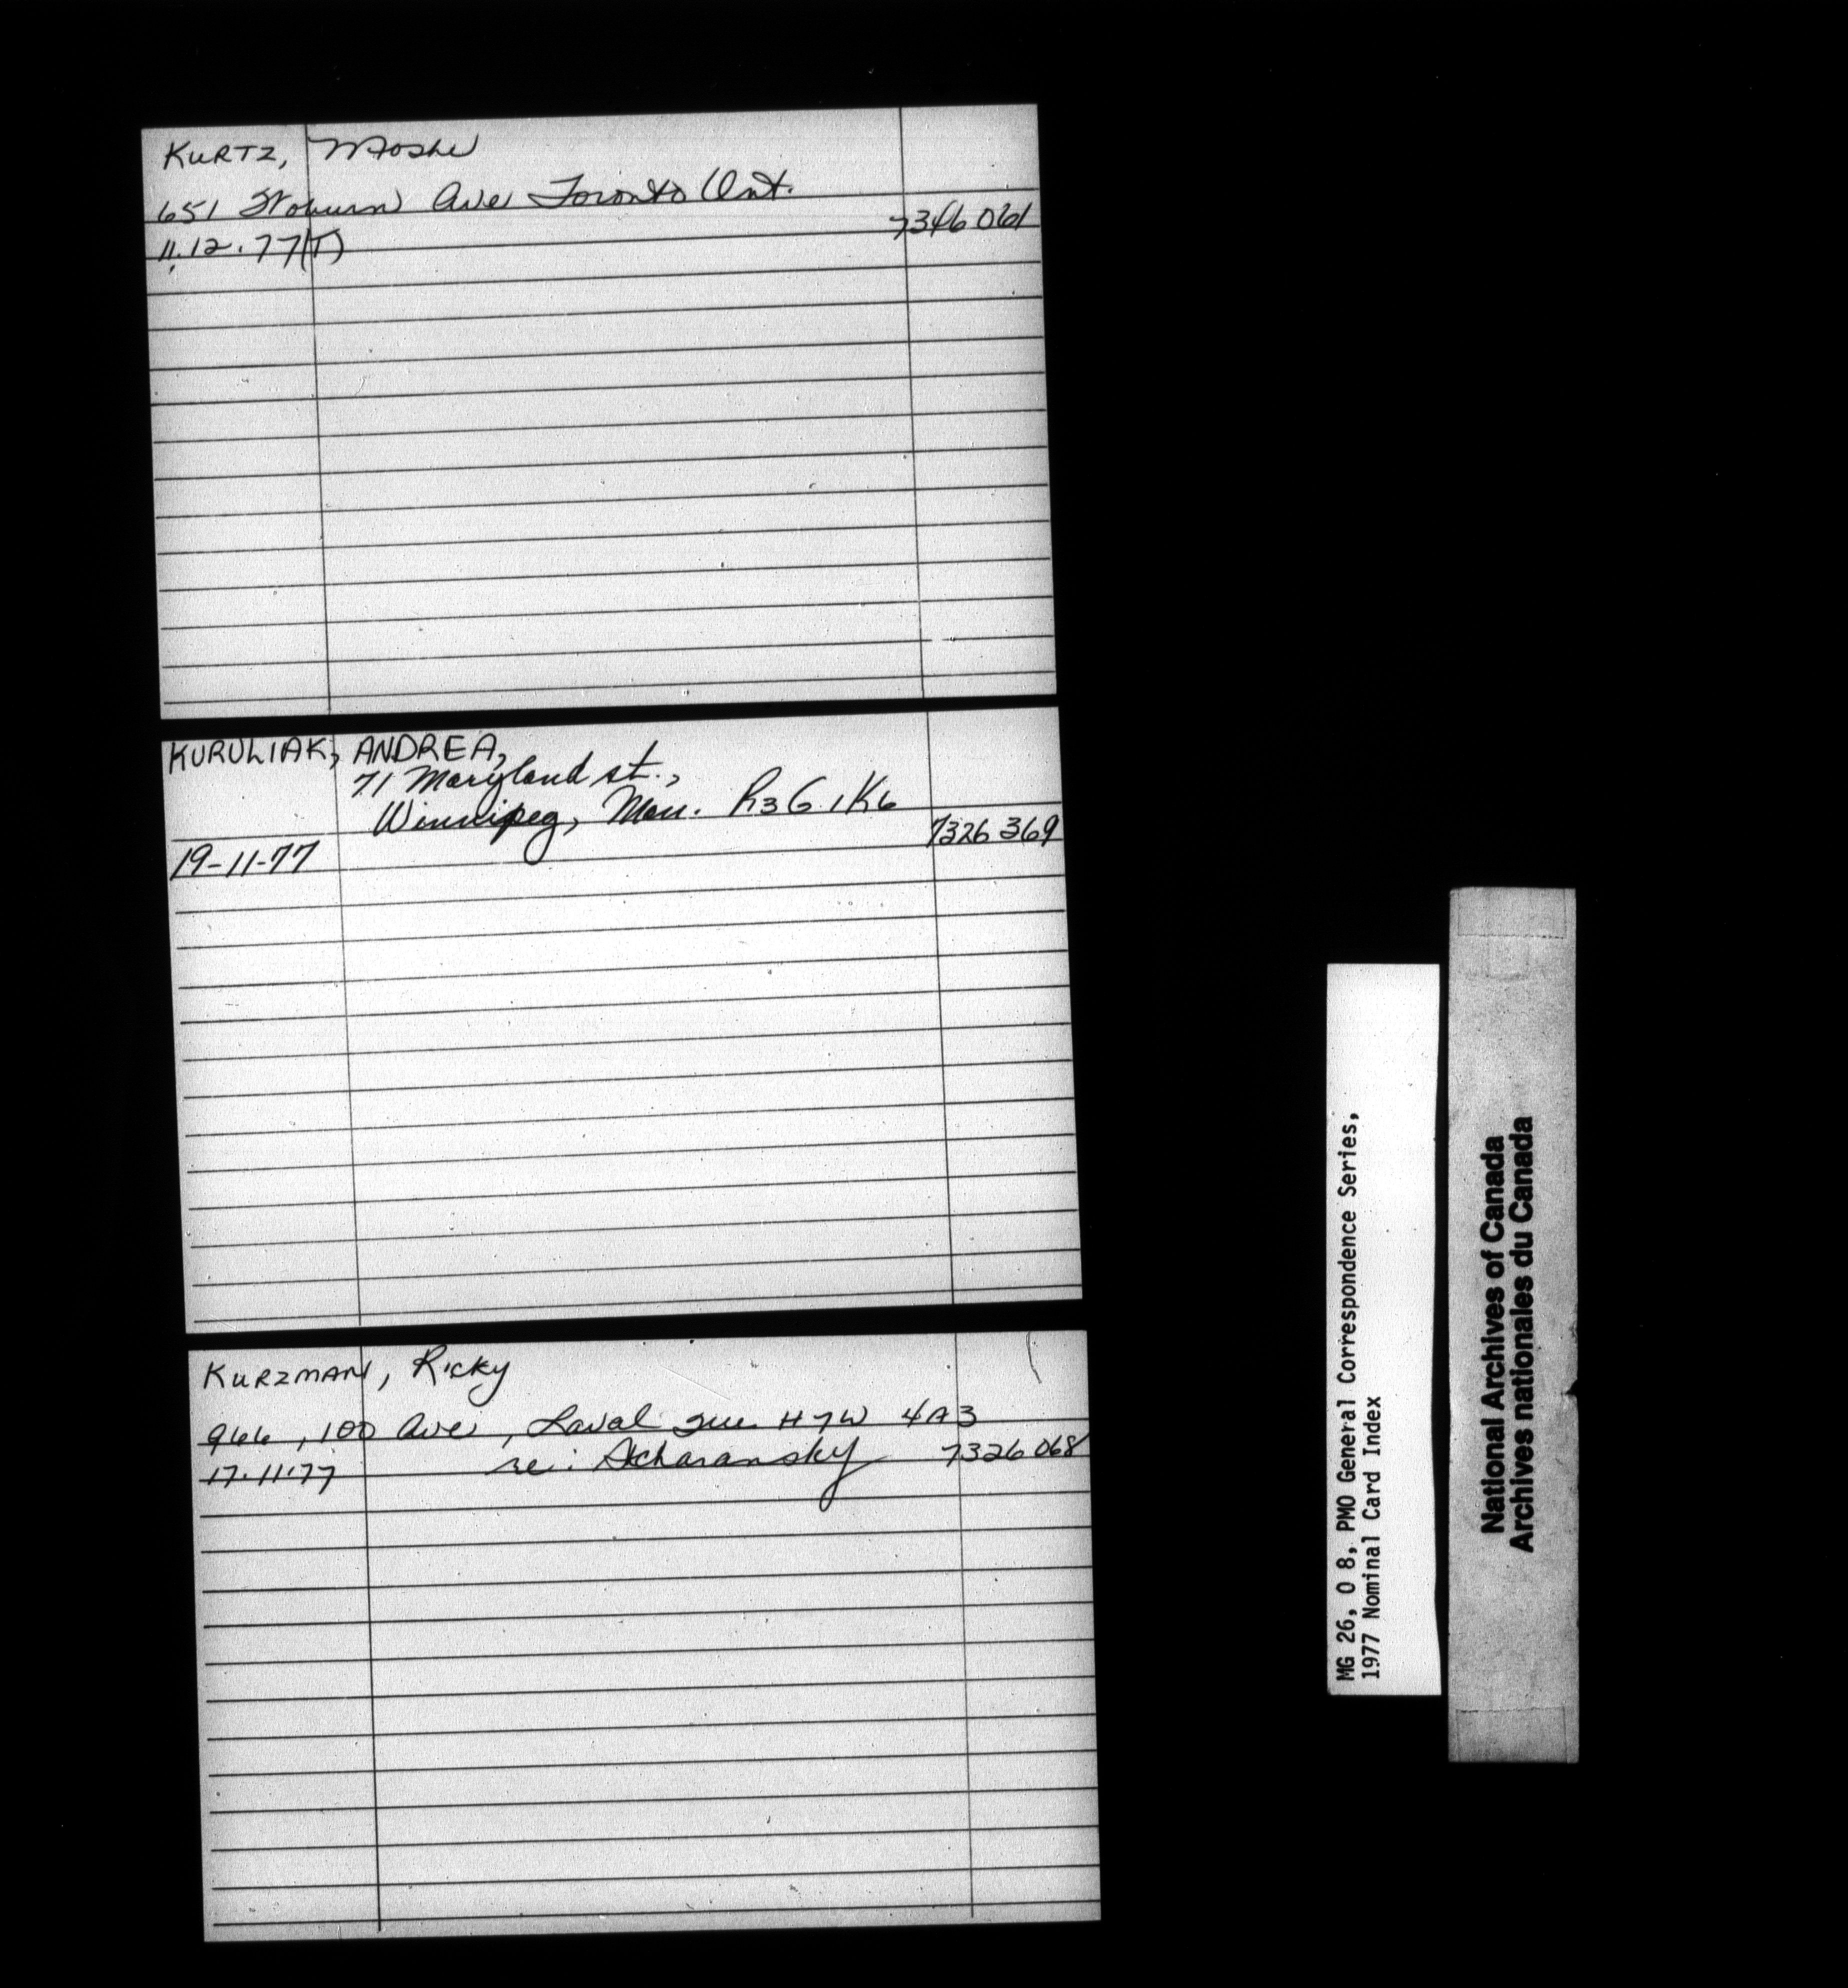 KURTZ, Moshe
651 Woburn Ave Toronto Ont.
11.12.77(T) 7346 061
KURULIAK, ANDREA,
71 Maryland st.,
Winnipeg, Man. R3G 1K6
19-11-77 7326 369
KURZMAN, Ricky
966, 100 Ave, Laval Que. H7W 4A3
17.11.77 re: Scharansky 7326 068
MG 26, O 8, PMO General Correspondence Series,
1977 Nominal Card Index
National Archives of Canada
Archives nationales du Canada